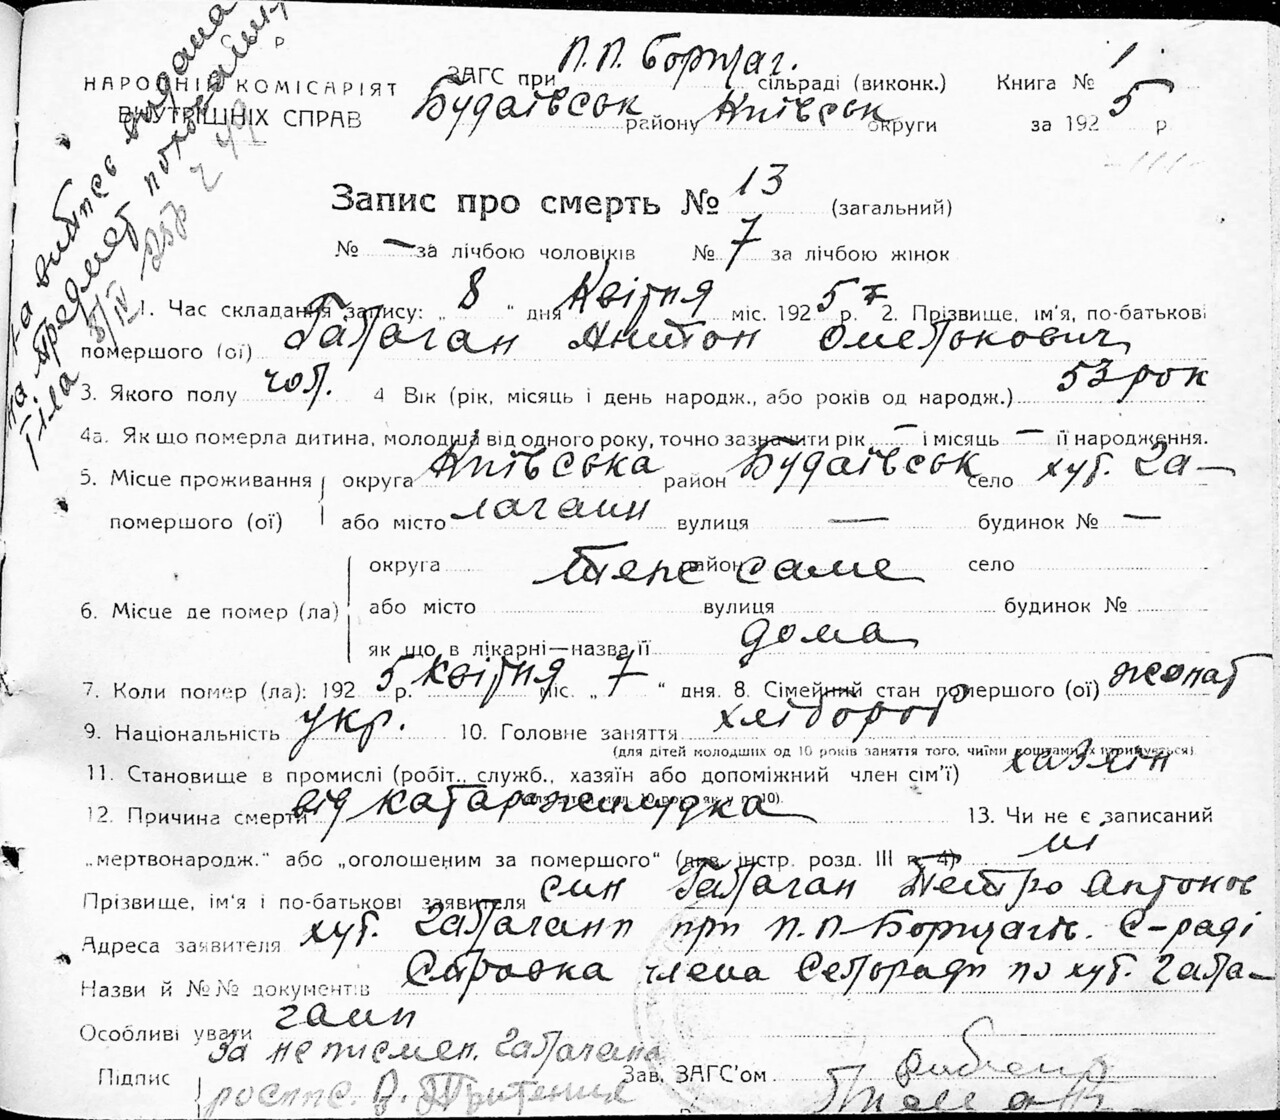 На витпсь видана
на предмет поховання
тіла 8/IV 25р ч 49
НАРОДНІЙ КОМІСАРІЯТ
ВНУТРІШНІХ СПРАВ
ЗАГС при П.П. Борщаг. сільраді (виконк.) Книга № 1
Будаївськ району Київськ округи за 1925 р.
Запис про смерть № 13 (загальний)
№ — за лічбою чоловіків № 7 за лічбою жінок
1. Час складання запису: „ 8 “ дня Квітня міс. 1925 р. 2. Прізвище, ім'я, по-батькові
помершого (ої) Галаган Антон Омелькович
3. Якого полу чол. 4 Вік (рік, місяць і день народж., або років од народж.) 53 рок
4а. Як що померла дитина, молодша від одного року, точно зазначити рік — і місяць — її народження.
5. Місце проживання округа Київська район Будаївськ село хут. Га-
помершого (ої) або місто лагани вулиця — будинок № —
округа район село
Теж саме
6. Місце де помер (ла) або місто вулиця будинок №
як що в лікарні—назва її дома
7. Коли помер (ла): 1925 р. квітня міс. „ 7 “ дня. 8. Сімейний стан помершого (ої) жонат
9. Національність укр. 10. Головне заняття хлібороб
(для дітей молодших од 10 років заняття того, чиїми коштами їх утримується)
11. Становище в промислі (робіт., служб., хазяїн або допоміжний член сім'ї) хазяїн
12. Причина смерти від катара жилудка 13. Чи не є записаний
„мертвонародж.“ або „оголошеним за помершого“ (див. інстр. розд. III п. 4) ні
Прізвище, ім'я і по-батькові заявителя син Галаган Петро Антонов
Адреса заявителя хут. Галагани при П.П-Борщагів. С-раді
Назви й №№ документів Справка члена Сельради по хут. Гала-
Особливі уваги гани
За неписмен. Галагана
Підпис роспис. Зав. ЗАГС'ом